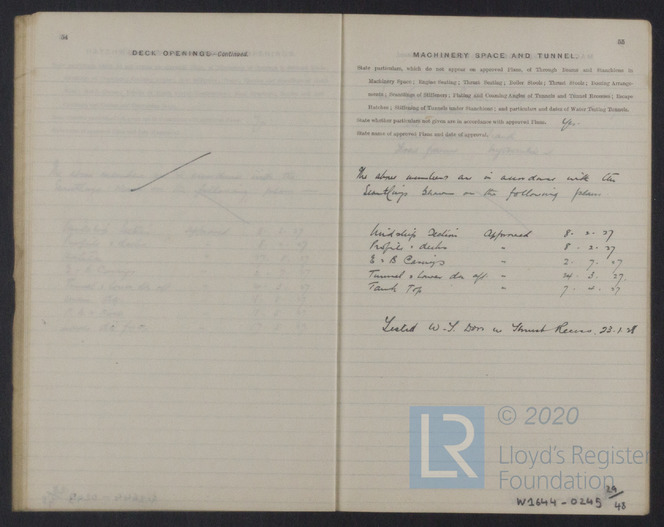 54
DECK OPENINGS—Continued.
55
MACHINERY SPACE AND TUNNEL.
State particulars, which do not appear on approved Plans, of Through Beams and Stanchions in
Machinery Space; Engine Seating; Thrust Seating; Boiler Stools; Thrust Stools; Bossing Arrange-
ments; Scantlings of Stiffeners; Plating and Connecting Angles of Tunnels and Thrust Recesses; Escape
Hatches; Stiffening of Tunnels under Stanchions; and particulars and dates of Water Testing Tunnels.
State whether particulars not given are in accordance with approved Plans. Yes.
State name of approved Plans and date of approval.
The above numbers are in accordance with the
Scantlings Shewn on the following plans
Midship Section Approved 8. 2. 27
Profile & decks " 8. 2. 27
E & B Casings " 2. 7. 27
Tunnel & lower dk aft " 24. 3. 27.
Tank Top " 7. 4. 27
Tested W.T. Door in Thrust Recess. 23.1.28
LR
© 2020
Lloyd's Register
Foundation
W1644-0245 24/48